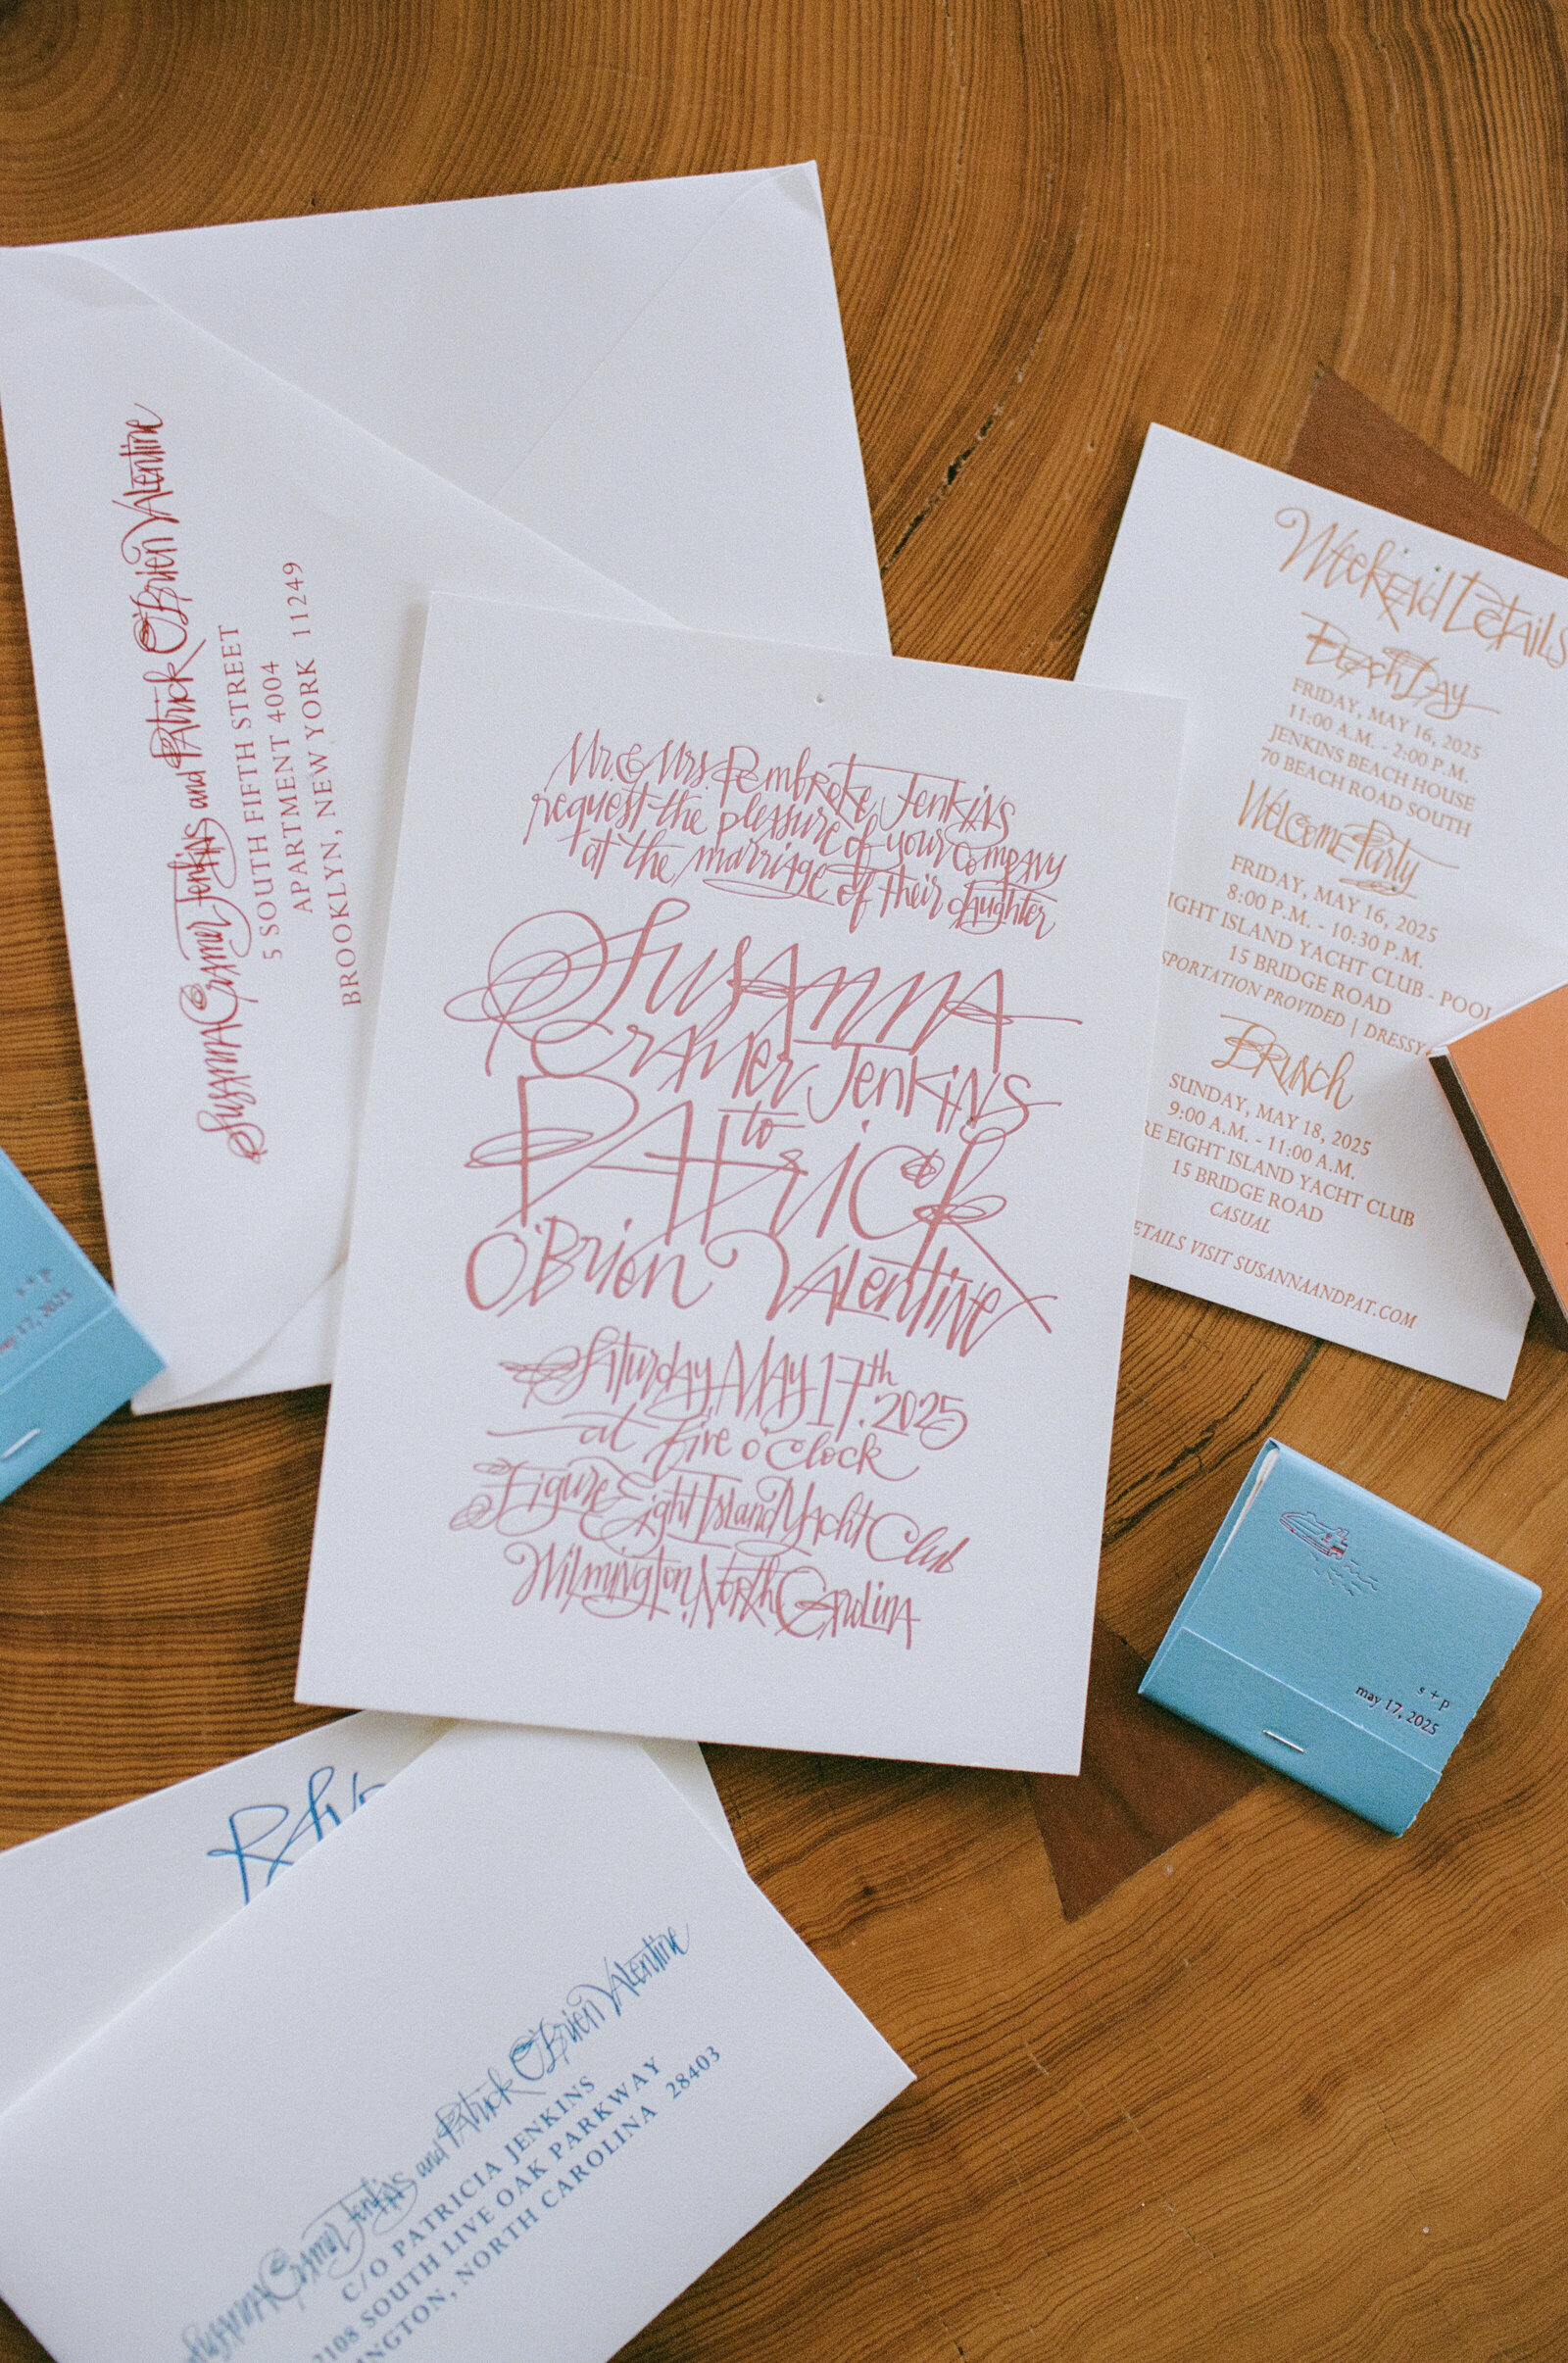 Susanna Cramer Jenkins and Patrick O'Brien Valentine
5 SOUTH FIFTH STREET
APARTMENT 4004
BROOKLYN, NEW YORK 11249
Mr. & Mrs. Pembroke Jenkins
request the pleasure of your company
at the marriage of their daughter
Susanna
Cramer Jenkins
to
Patrick
O'Brien Valentine
Saturday, May 17th, 2025
at five o'clock
Figure Eight Island Yacht Club
Wilmington, North Carolina
Weekend Details
Beach Day
FRIDAY, MAY 16, 2025
11:00 A.M. - 2:00 P.M.
JENKINS BEACH HOUSE
70 BEACH ROAD SOUTH
Welcome Party
FRIDAY, MAY 16, 2025
8:00 P.M. - 10:30 P.M.
IGHT ISLAND YACHT CLUB - POOL
15 BRIDGE ROAD
SPORTATION PROVIDED | DRESSY
Brunch
SUNDAY, MAY 18, 2025
9:00 A.M. - 11:00 A.M.
RE EIGHT ISLAND YACHT CLUB
15 BRIDGE ROAD
CASUAL
ETAILS VISIT SUSANNAANDPAT.COM
s + p
may 17, 2025
s + p
may 17, 2025
Susanna Cramer Jenkins and Patrick O'Brien Valentine
C/O PATRICIA JENKINS
2108 SOUTH LIVE OAK PARKWAY
INGTON, NORTH CAROLINA 28403